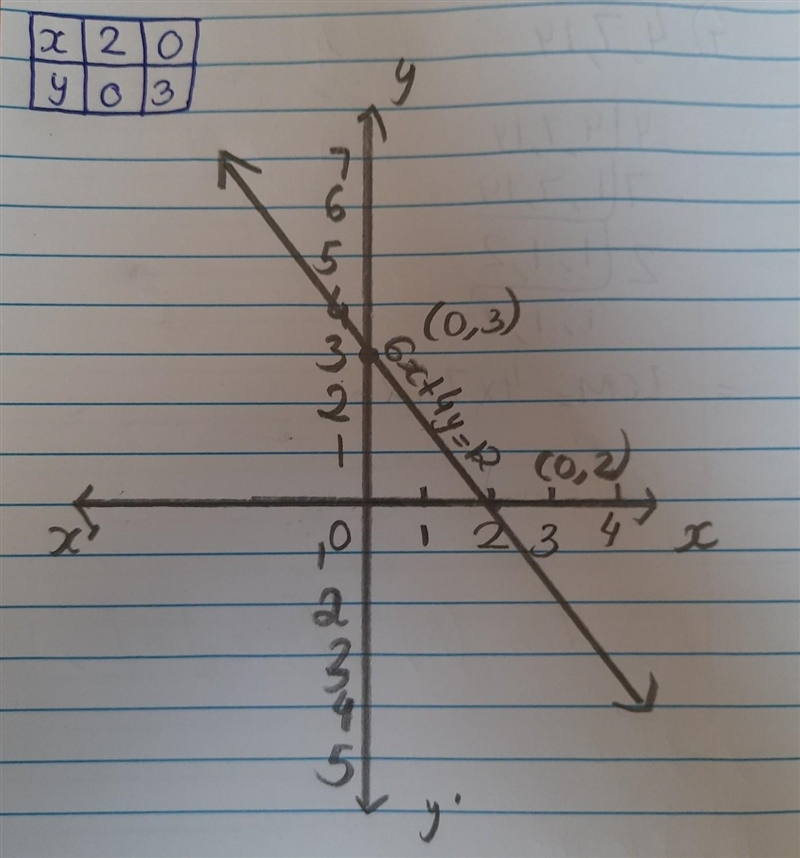 x 2 0
y 0 3
y
7
6
5
4
(0,3)
3
6x+4y=12
2
1
(0,2)
x' 0 1 2 3 4 x
1
2
3
4
5
y'